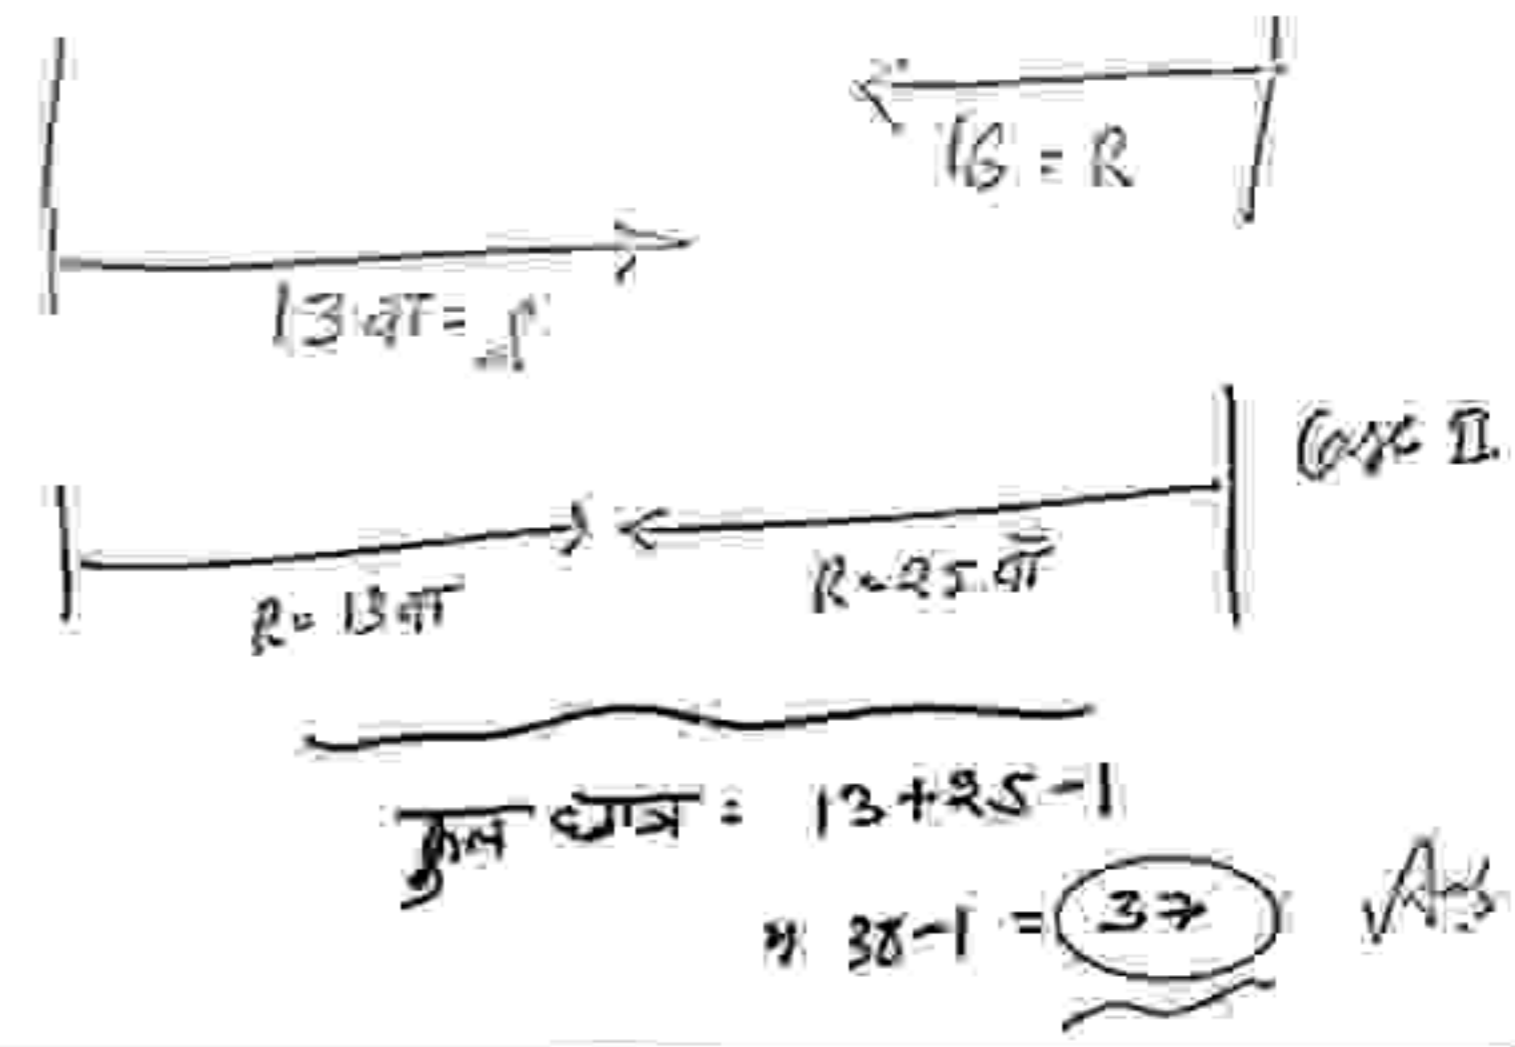 16 = R
13 वां =
Case II.
R = 13 वां
R = 25 वां
कुल छात्र = 13+25-1
= 38-1 = 37 Ans